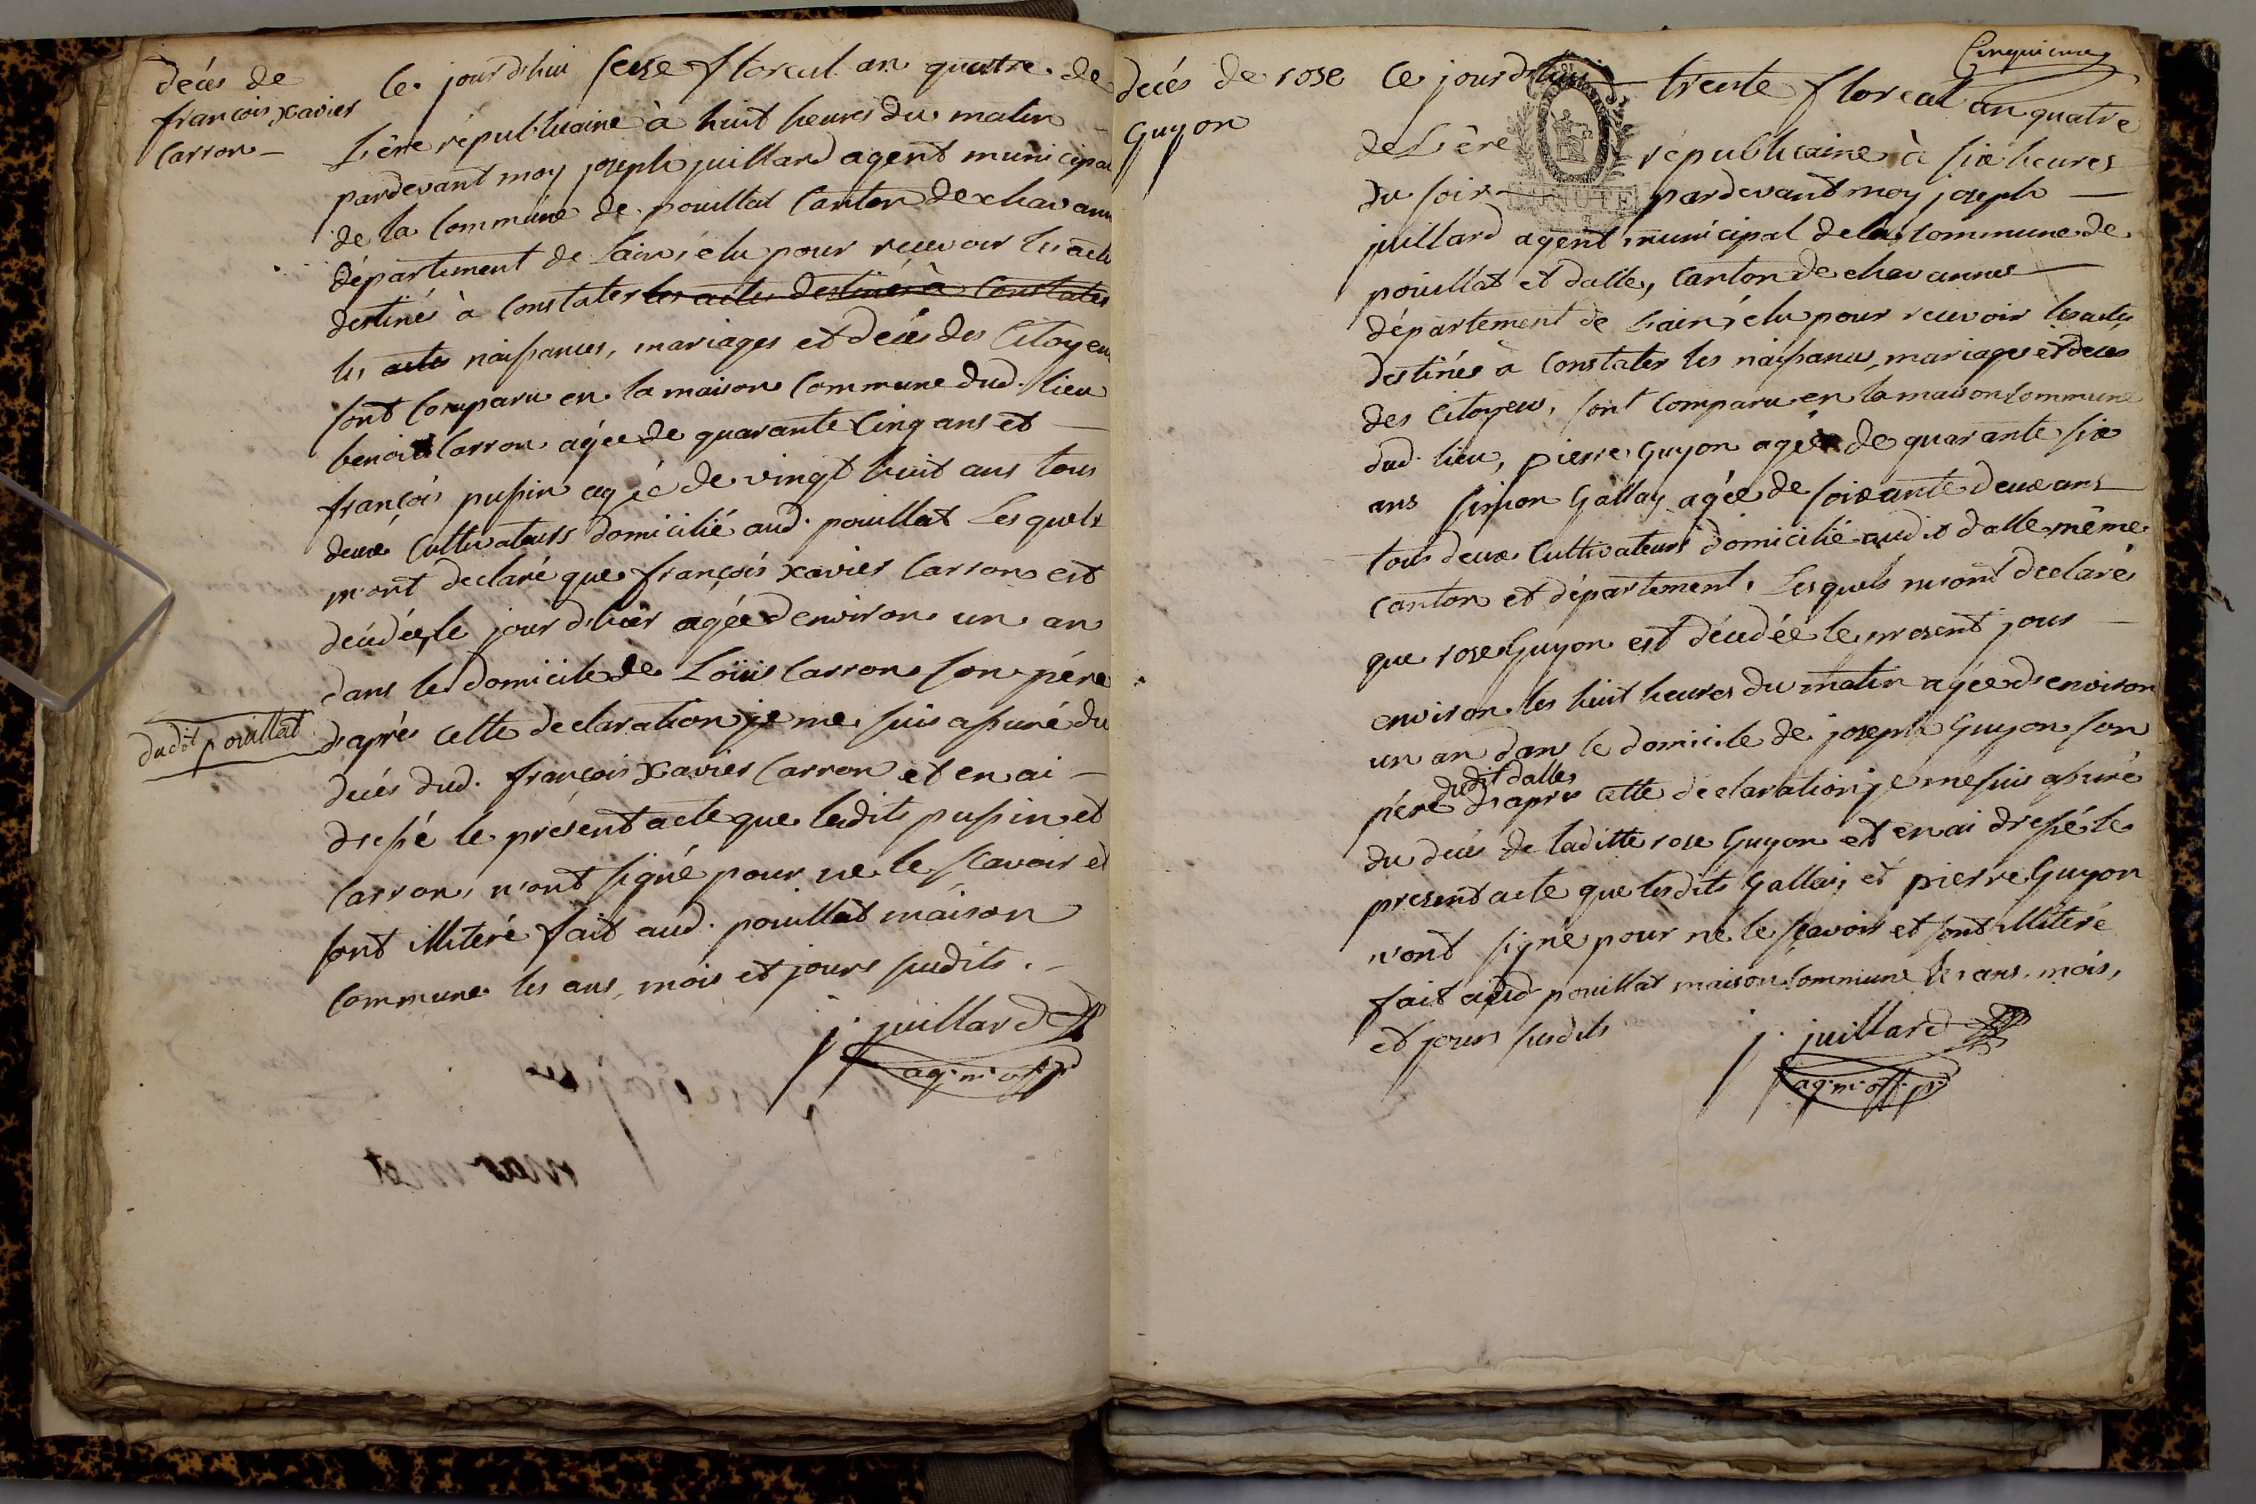 décés de
françois xavier
Carron
Ce jourd'hui seise floreal an quatre de
L'ère républicaine à huit heures du matin
pardevant moy joseph juillard agent municipal
de la Commune de pouillat Canton de chavann
département de L'ain, élu pour recevoir les acte
destinés à Constater les actes destinés à Constater
les actes naissances, mariages et décés des Citoyens
sont Comparu en la maison Commune dud. lieu
benoit Carron agée de quarante Cinq ans et
françois pussin agée de vingt huit ans tous
deux Cultivateurs domicilié aud. pouillat Lesquels
m'ont declaré que françois xavier Carron est
décédée, le jour d'hier agée denviron un an
dans le domicile de Loüis Carron son pére
dudit pouillat
d'aprés cette declaration je me suis assuré du
decés dud. françois Xavier Carron et en ai
dressé le présent acte que lesdits pussin et
Carron, n'ont signé pour ne le scavoir et
sont illitéré fait aud. pouillat maison
Commune les ans, mois et jours susdits.
j. juillard
ag. m. off. p.
Cinquieme
decés de rose
Guyon
Ce jourd'hui trente floreal an quatre
de L'ère républicaine à six heures
du soir pardevant moy joseph
MINUTE
juillard agent municipal de la Commune de
pouillat et dalle, Canton de chavannes
département de L'ain, élu pour recevoir les actes
destinés à Constater les naissances, mariages et deces
des Citoyens, sont Comparu en la maison Commune
dud. lieu, pierre Guyon agée de quarante six
ans simon Gallay agée de soixante deux ans
tous deux Cultivateurs domicilié audit dalle même
Canton et département, Lesquels m'ont declarés
que rose Guyon est décédée le present jour
environ les huit heures du matin agée d'environ
un an dans le domicile de joseph Guyon son
dudit dalle
pére d'aprés cette declaration je me suis assuré
du decés de laditte rose Guyon et en ai dressé le
present acte que lesdits Gallay et pierre Guyon
n'ont signé pour ne le scavoir et sont illitéré
fait aud. pouillat maison Commune les ans, mois,
et jours susdits
j. juillard
ag. m. off. p.